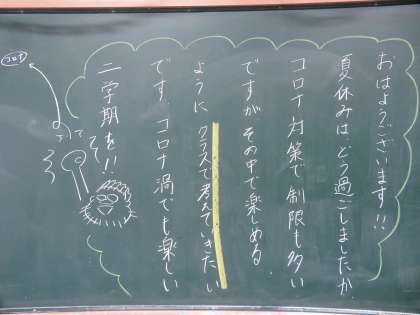 おはようございます!!
夏休みは、どう過ごしましたか
コロナ対策で制限も多い
ですが、その中で楽しめる
ように、クラスで考えていきたい
です。コロナ渦でも楽しい
二学期を!!
コロナ